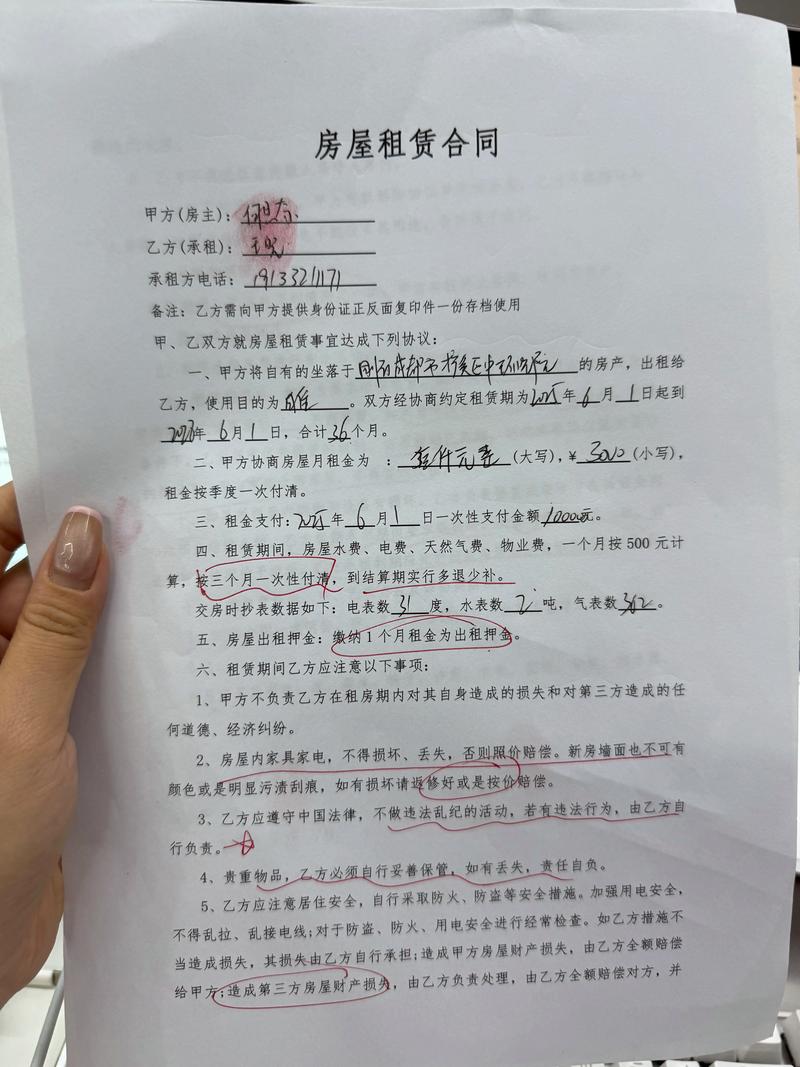 房屋租赁合同
甲方(房主):
乙方(承租):
承租方电话: 19133211171
备注: 乙方需向甲方提供身份证正反面复印件一份存档使用
甲、乙双方就房屋租赁事宜达成下列协议:
一、甲方将自有的坐落于 的房产, 出租给
乙方, 使用目的为 。双方经协商约定租赁期为2025年6月1日起到
年6月1日, 合计36个月。
二、甲方协商房屋月租金为 : (大写), ¥3000(小写),
租金按季度一次付清。
三、租金支付:2025年6月1日一次性支付金额10000元。
四、租赁期间, 房屋水费、电费、天然气费、物业费, 一个月按500元计
算, 按三个月一次性付清, 到结算期实行多退少补。
交房时抄表数据如下: 电表数31度, 水表数2吨, 气表数362。
五、房屋出租押金: 缴纳1个月租金为出租押金。
六、租赁期间乙方应注意以下事项:
1、甲方不负责乙方在租房期内对其自身造成的损失和对第三方造成的任
何道德、经济纠纷。
2、房屋内家具家电, 不得损坏、丢失, 否则照价赔偿。新房墙面也不可有
颜色或是明显污渍刮痕, 如有损坏请返修好或是按价赔偿。
3、乙方应遵守中国法律, 不做违法乱纪的活动, 若有违法行为, 由乙方自
行负责。
4、贵重物品, 乙方必须自行妥善保管, 如有丢失, 责任自负。
5、乙方应注意居住安全, 自行采取防火、防盗等安全措施。加强用电安全,
不得乱拉、乱接电线;对于防盗、防火、用电安全进行经常检查。如乙方措施不
当造成损失, 其损失由乙方自行承担; 造成甲方房屋财产损失, 由乙方全额赔偿
给甲方;造成第三方房屋财产损失, 由乙方负责处理, 由乙方全额赔偿对方, 并